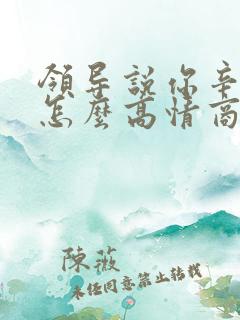 領导說你辛
怎麼高情商
陳薇
未经同意禁止转载